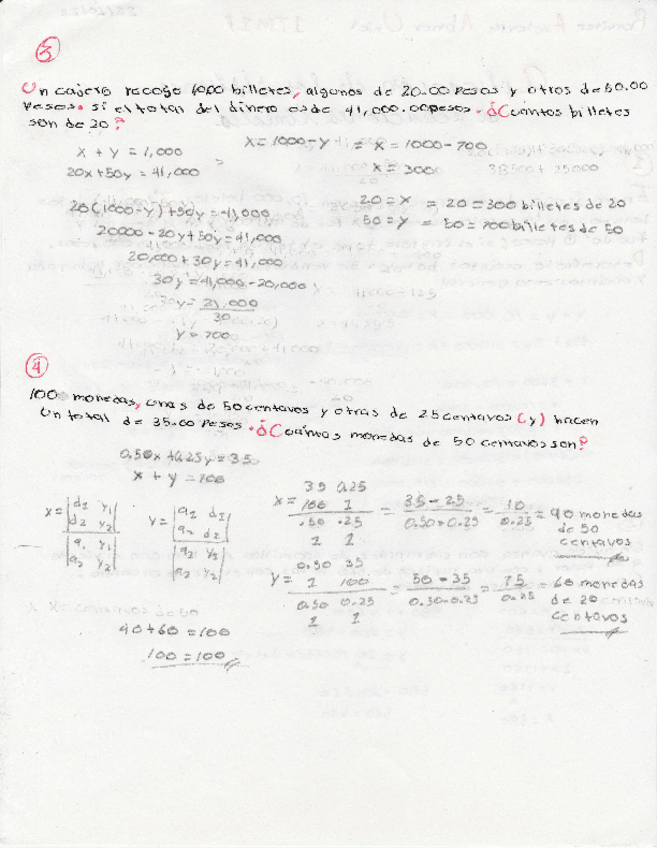 3
Un cajero recoge 1000 billetes, algunos de 20.00 Pesos y otros de 50.00
Pesos. si el total del dinero es de 41,000.00 pesos. ¿Cuántos billetes
son de 20?
x + y = 1,000
20x + 50y = 41,000
20(1000-y) + 50y = 41,000
20000 - 20y + 50y = 41,000
20,000 + 30y = 41,000
30y = 41,000 - 20,000
30y = 21,000
30
y = 700
x = 1000 - y = x = 1000 - 700
x = 3000
20 = x = 20 = 300 billetes de 20
50 = y = 50 = 700 billetes de 50
4
100 monedas, unas de 50 centavos y otras de 25 centavos (y) hacen
Un total de 35.00 Pesos. ¿Cuántas monedas de 50 centavos son?
0.50x + 0.25y = 35
x + y = 100
x = d1 y1
d2 y2
a1 y1
a2 y2
y = a2 d1
a2 d2
a2 y2
a2 y2
40 + 60 = 100
100 = 100
x = 35 0.25
100 1
.50 .25
1 1
= 35 - 25
0.50 - 0.25
= 10
0.25
= 40 monedas
de 50
centavos
y = 0.50 35
1 100
0.50 0.25
1 1
= 50 - 35
0.50 - 0.25
= 15
0.25
= 60 monedas
de 20
centavos